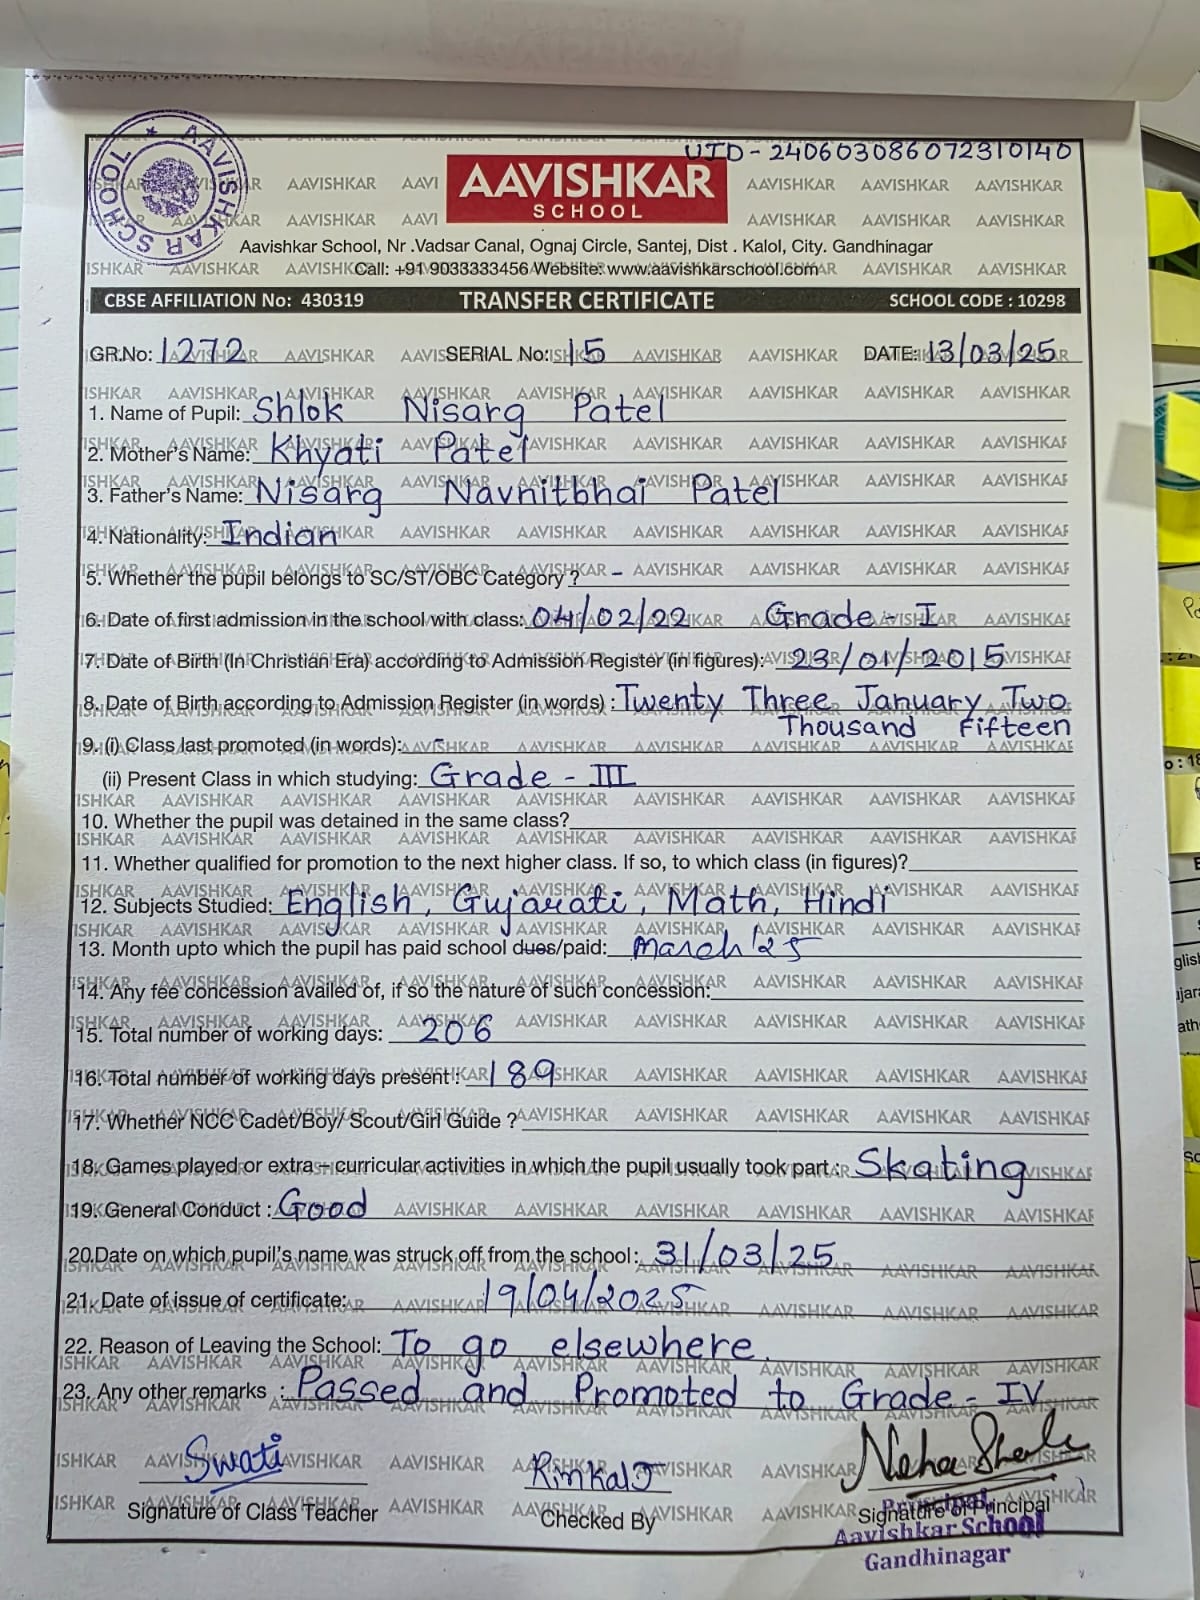 UID - 240603086072310140
AAVISHKAR SCHOOL
AAVISHKAR
SCHOOL
Aavishkar School, Nr .Vadsar Canal, Ognaj Circle, Santej, Dist . Kalol, City. Gandhinagar
Call: +91 9033333456 Website: www.aavishkarschool.com
CBSE AFFILIATION No: 430319 TRANSFER CERTIFICATE SCHOOL CODE : 10298
GR.No: 1272 SERIAL No: 15 DATE: 13/03/25
1. Name of Pupil: Shlok Nisarg Patel
2. Mother's Name: Khyati Patel
3. Father's Name: Nisarg Navnitbhai Patel
4. Nationality: Indian
5. Whether the pupil belongs to SC/ST/OBC Category ? -
6. Date of first admission in the school with class: 04/02/22 Grade - I
7. Date of Birth (In Christian Era) according to Admission Register (in figures): 23/01/2015
8. Date of Birth according to Admission Register (in words) : Twenty Three January Two
Thousand Fifteen
9. (i) Class last promoted (in words): -
(ii) Present Class in which studying: Grade - III
10. Whether the pupil was detained in the same class?
11. Whether qualified for promotion to the next higher class. If so, to which class (in figures)?
12. Subjects Studied: English, Gujarati, Math, Hindi
13. Month upto which the pupil has paid school dues/paid: March'25
14. Any fee concession availed of, if so the nature of such concession:
15. Total number of working days: 206
16. Total number of working days present : 189
17. Whether NCC Cadet/Boy/ Scout/Girl Guide ?
18. Games played or extra – curricular activities in which the pupil usually took part : Skating
19. General Conduct : Good
20.Date on which pupil's name was struck off from the school: 31/03/25
21. Date of issue of certificate: 19/04/2025
22. Reason of Leaving the School: To go elsewhere.
23. Any other remarks : Passed and Promoted to Grade - IV
Swati RinkalJ Neha
Signature of Class Teacher Checked By Signature of Principal
Principal
Aavishkar School
Gandhinagar